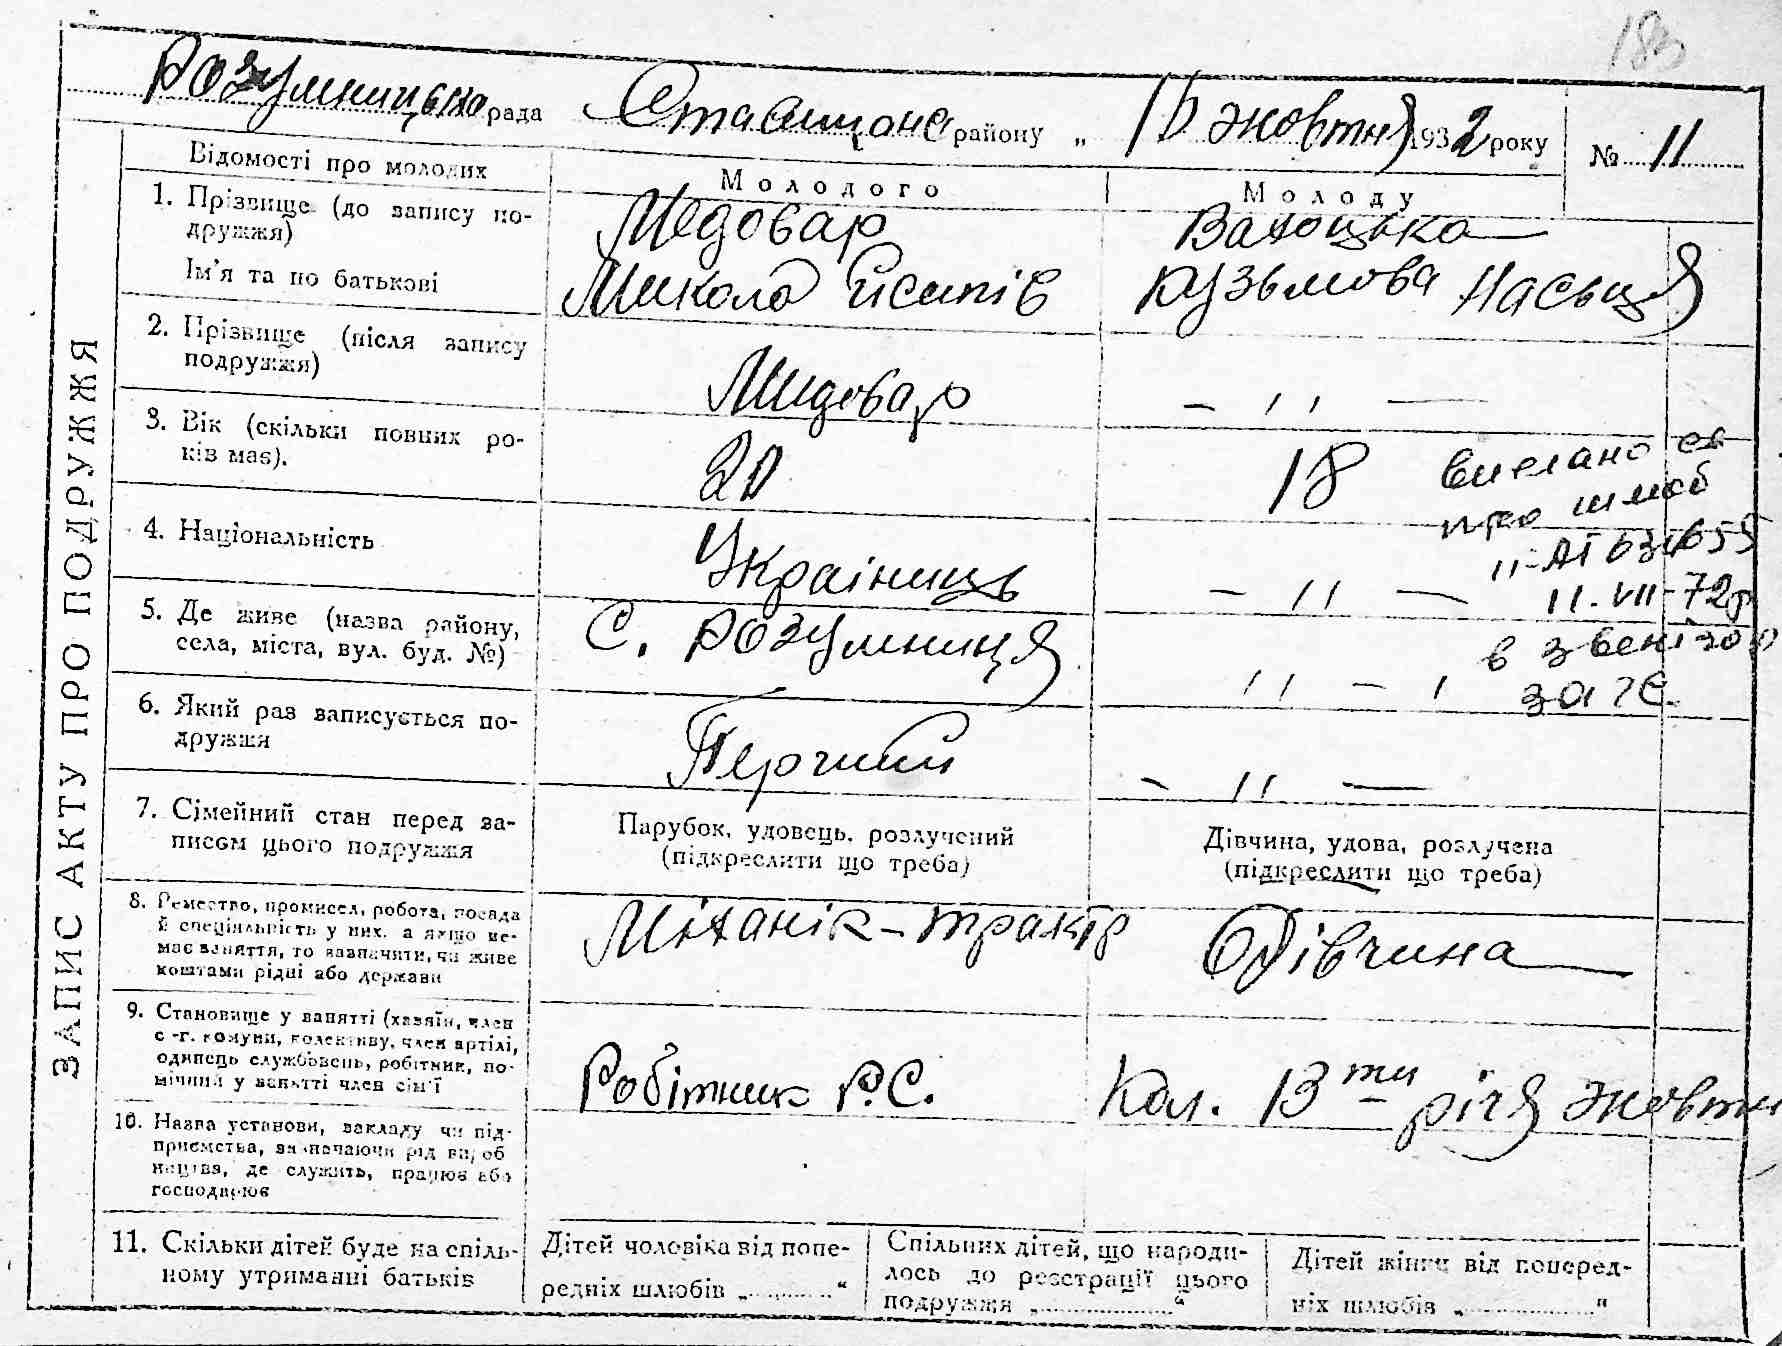 183
Розумницька рада Ставищанс району „ 15 жовтня 1932 року № 11
ЗАПИС АКТУ ПРО ПОДРУЖЖЯ
Відомості про молодих
Молодого
Молоду
1. Прізвище (до запису по-
дружжя)
Медовар
Ім'я та по батькові
Микола Йсипів
Кузьмова Насьця
2. Прізвище (після запису
подружжя)
Мидовар
– 〃 —
3. Вік (скільки повних ро-
ків має).
20
18
4. Національність
Україниць
– 〃 —
5. Де живе (назва району,
села, міста, вул. буд. №)
С. Розумниця
〃 –
6. Який раз записується по-
дружжя
Перчий
– 〃 —
7. Сімейний стан перед за-
писом цього подружжя
Парубок, удовець, розлучений
(підкреслити що треба)
Дівчина, удова, розлучена
(підкреслити що треба)
8. Ремество, промисел, робота, посада
й спеціяльність у них, а якщо не-
має заняття, то зазначити, чи живе
коштами рідні або держави
Міханік-трактр
Дівчина
9. Становище у занятті (хазяїн, член
с.-г. комуни, колективу, член артілі,
одинець службовець, робітник, по-
мічний у занятті член сім'ї
Робітник Р.С.
Кол. 13ти річя жовтн
10. Назва установи, закладу чи під-
приємства, зазначаючи рід вироб
ництва, де служить, працює або
господарює
11. Скільки дітей буде на спіль-
ному утриманні батьків
Дітей чоловіка від попе-
редніх шлюбів „..........“
Спільних дітей, що народи-
лось до реєстрації цього
подружжя „..........“
Дітей жінки від поперед-
ніх шлюбів „..........“
про шлюб
11-VII-72р
в Звенігор
загс.